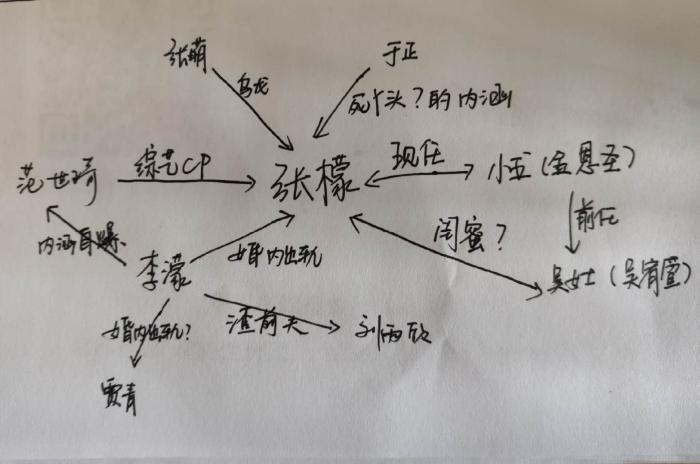 张萌
于正
乌龙
死丫头？的内涵
范世琦
综艺CP
张檬
现任
小五（金恩圣）
内涵自爆
李濛
婚内出轨
闺蜜？
前任
吴女士（吴宥萱）
婚内出轨？
渣前夫
刘雨欣
贾青